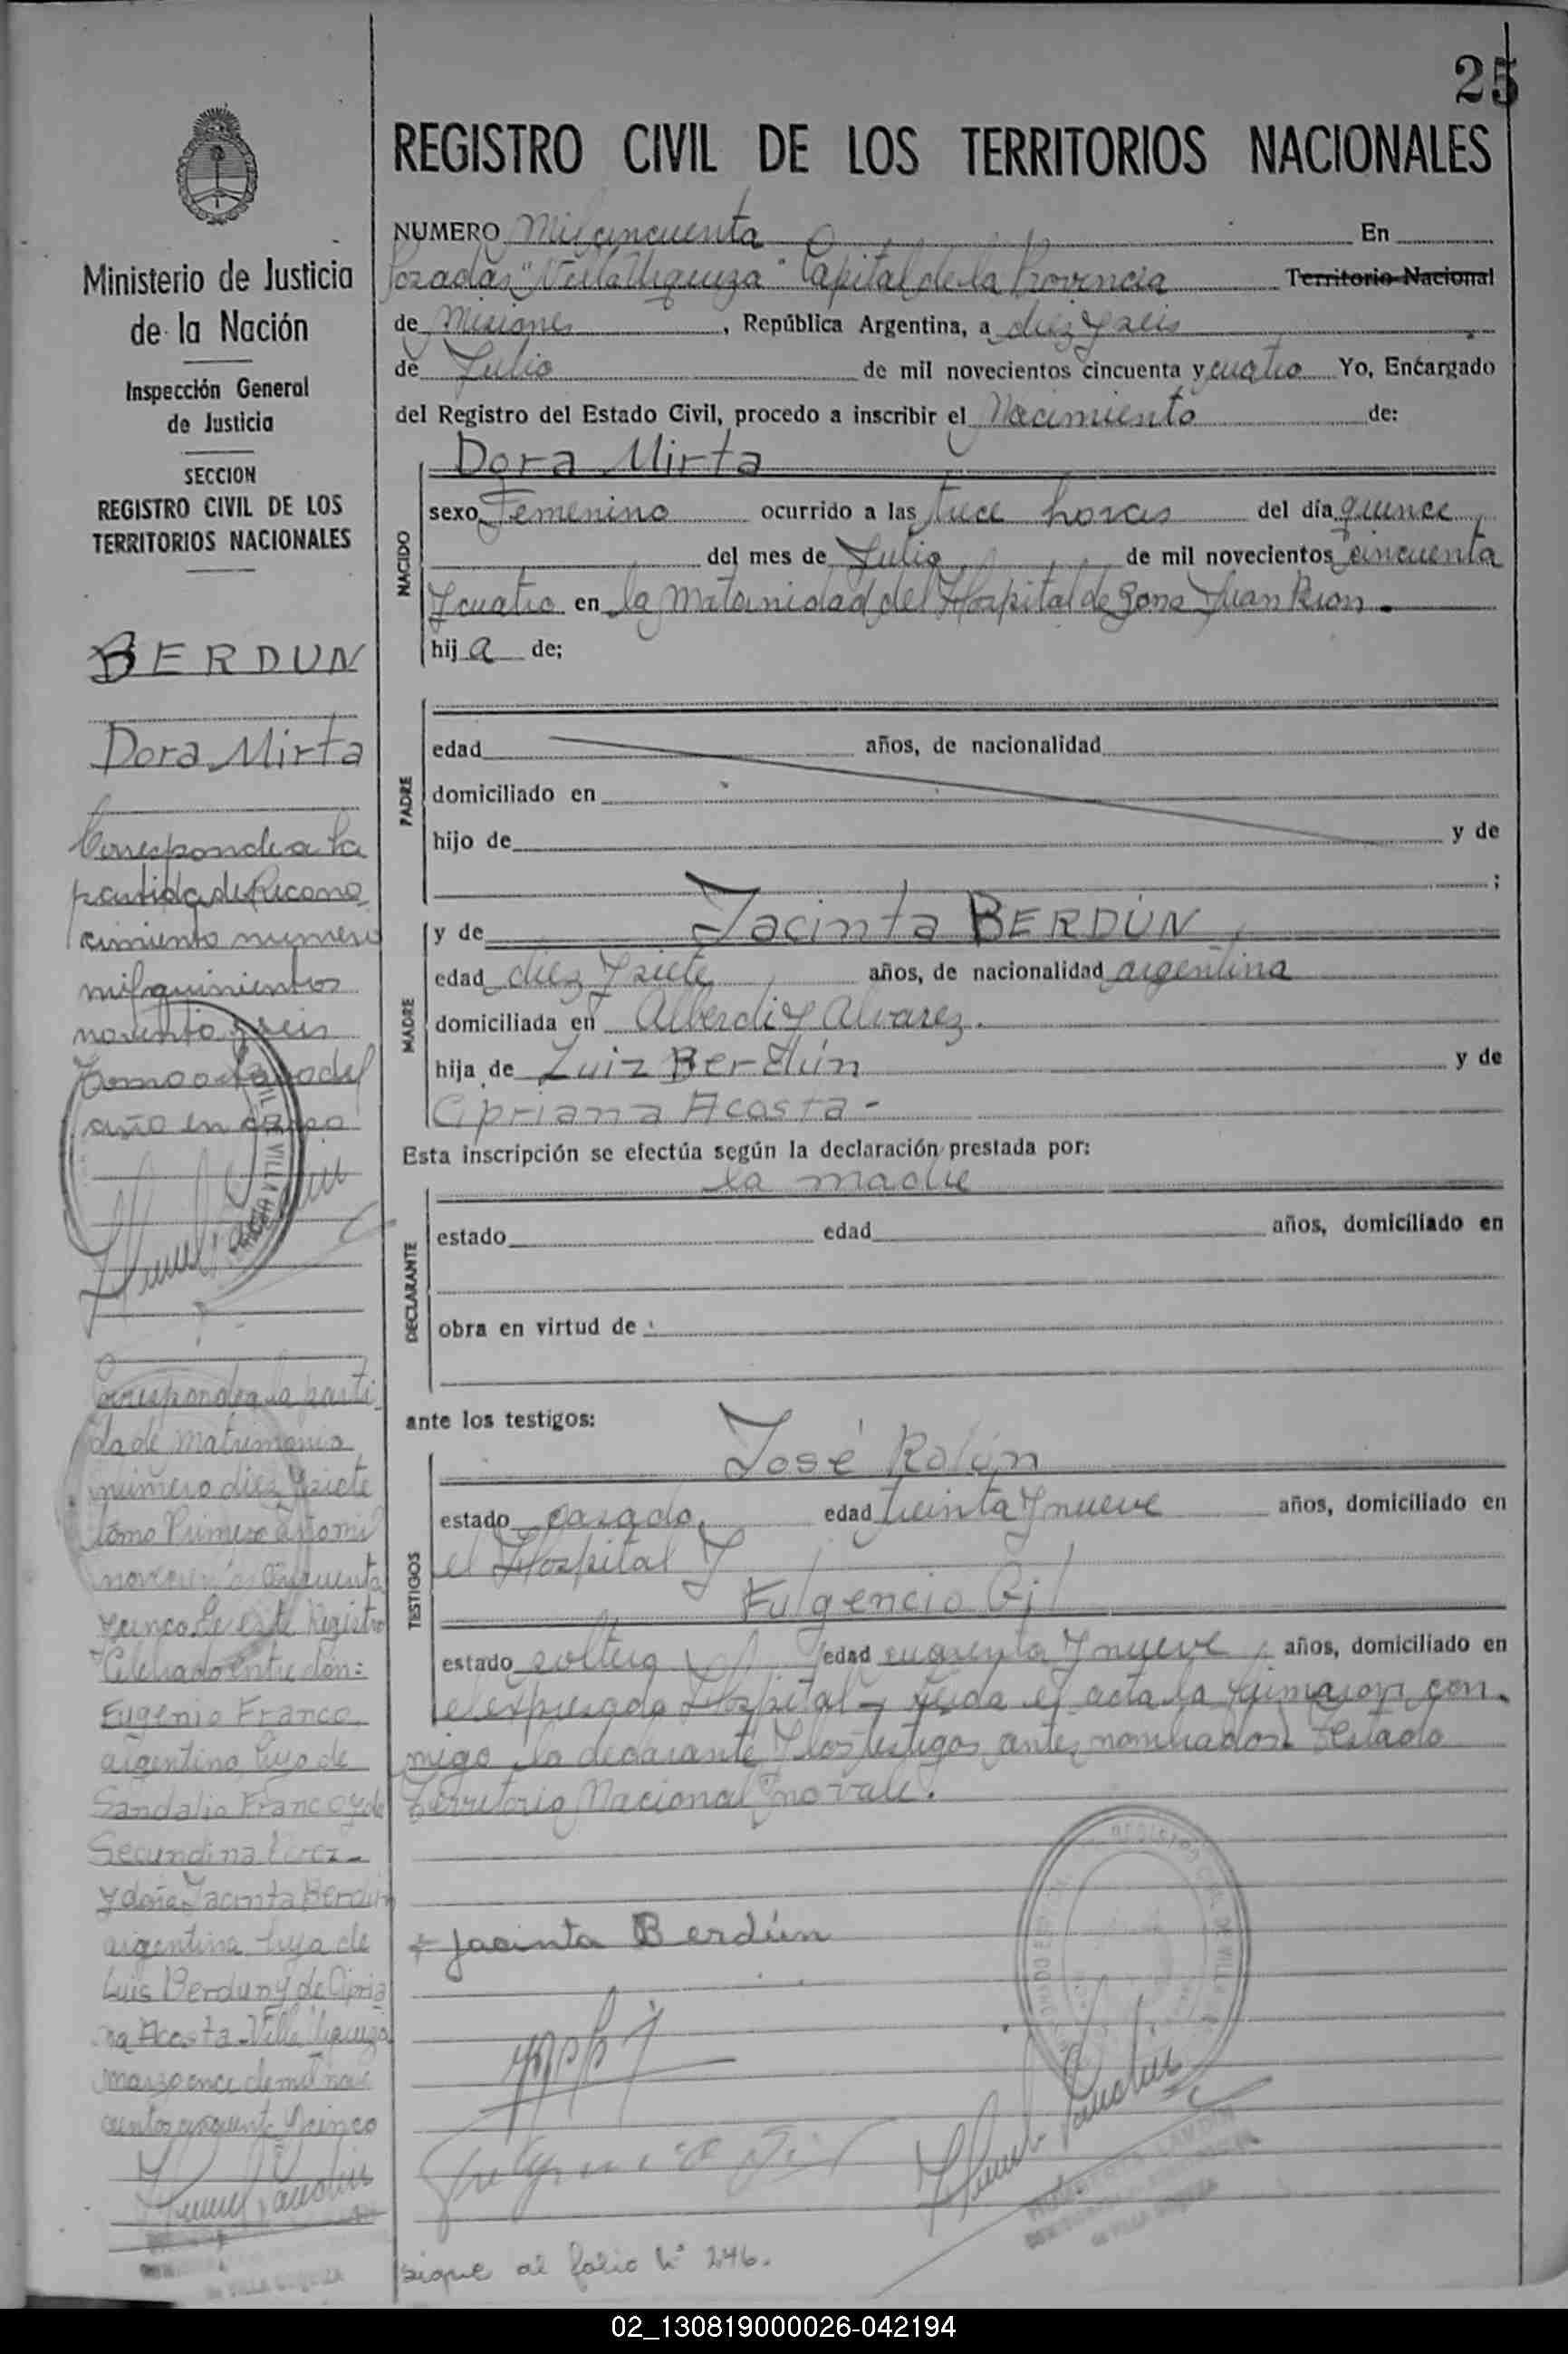 25
REGISTRO CIVIL DE LOS TERRITORIOS NACIONALES
NUMERO Mil cincuenta En
Posadas "Villa Urquiza" Capital de la Provincia Territorio Nacional
de Misiones, República Argentina, a diez y seis
de Julio de mil novecientos cincuenta y cuatro Yo, Encargado
del Registro del Estado Civil, procedo a inscribir el Nacimiento de:
NACIDO
Dora Mirta
sexo Femenino ocurrido a las trece horas del día quince
del mes de Julio de mil novecientos cincuenta
y cuatro en la Maternidad del Hospital de Zona Juan Peron.
hij a de;
PADRE
edad años, de nacionalidad
domiciliado en
hijo de y de
;
MADRE
y de Jacinta BERDÚN,
edad diez y siete años, de nacionalidad argentina
domiciliada en Alberdi y Alvarez.
hija de Luiz Berdún y de
Cipriana Acosta-
Esta inscripción se efectúa según la declaración prestada por:
DECLARANTE
la madre
estado edad años, domiciliado en
obra en virtud de
ante los testigos:
TESTIGOS
José Rolón
estado casado, edad treinta y nueve años, domiciliado en
el Hospital y
Fulgencio Gil
estado soltero edad cuarenta y nueve, años, domiciliado en
el expresado Hospital- Leida el acta la firmaron con-
migo la declarante y los testigos antes nombrados. Testado
Territorio Nacional no vale.
Jacinta Berdún
sigue al folio Nº 246.
Ministerio de Justicia
de la Nación
Inspección General
de Justicia
SECCION
REGISTRO CIVIL DE LOS
TERRITORIOS NACIONALES
BERDUN
Dora Mirta
Corresponde a la
partida de Recono-
cimiento número
mil quinientos
noventa y seis
Tomo octavo del
año en curso
Corresponde a la parti-
da de matrimonio
número diez y siete
tomo Primero año mil
novecientos cincuenta
y cinco de este Registro
Celebrado entre don:
Eugenio Franco,
argentino hijo de
Sandalio Franco y de
Secundina Perez-
y doña Jacinta Berdun
argentina hija de
Luis Berdun y de Cipria
na Acosta-Villa Urquiza
marzo once de mil nove
cientos cincuenta y cinco
02_130819000026-042194